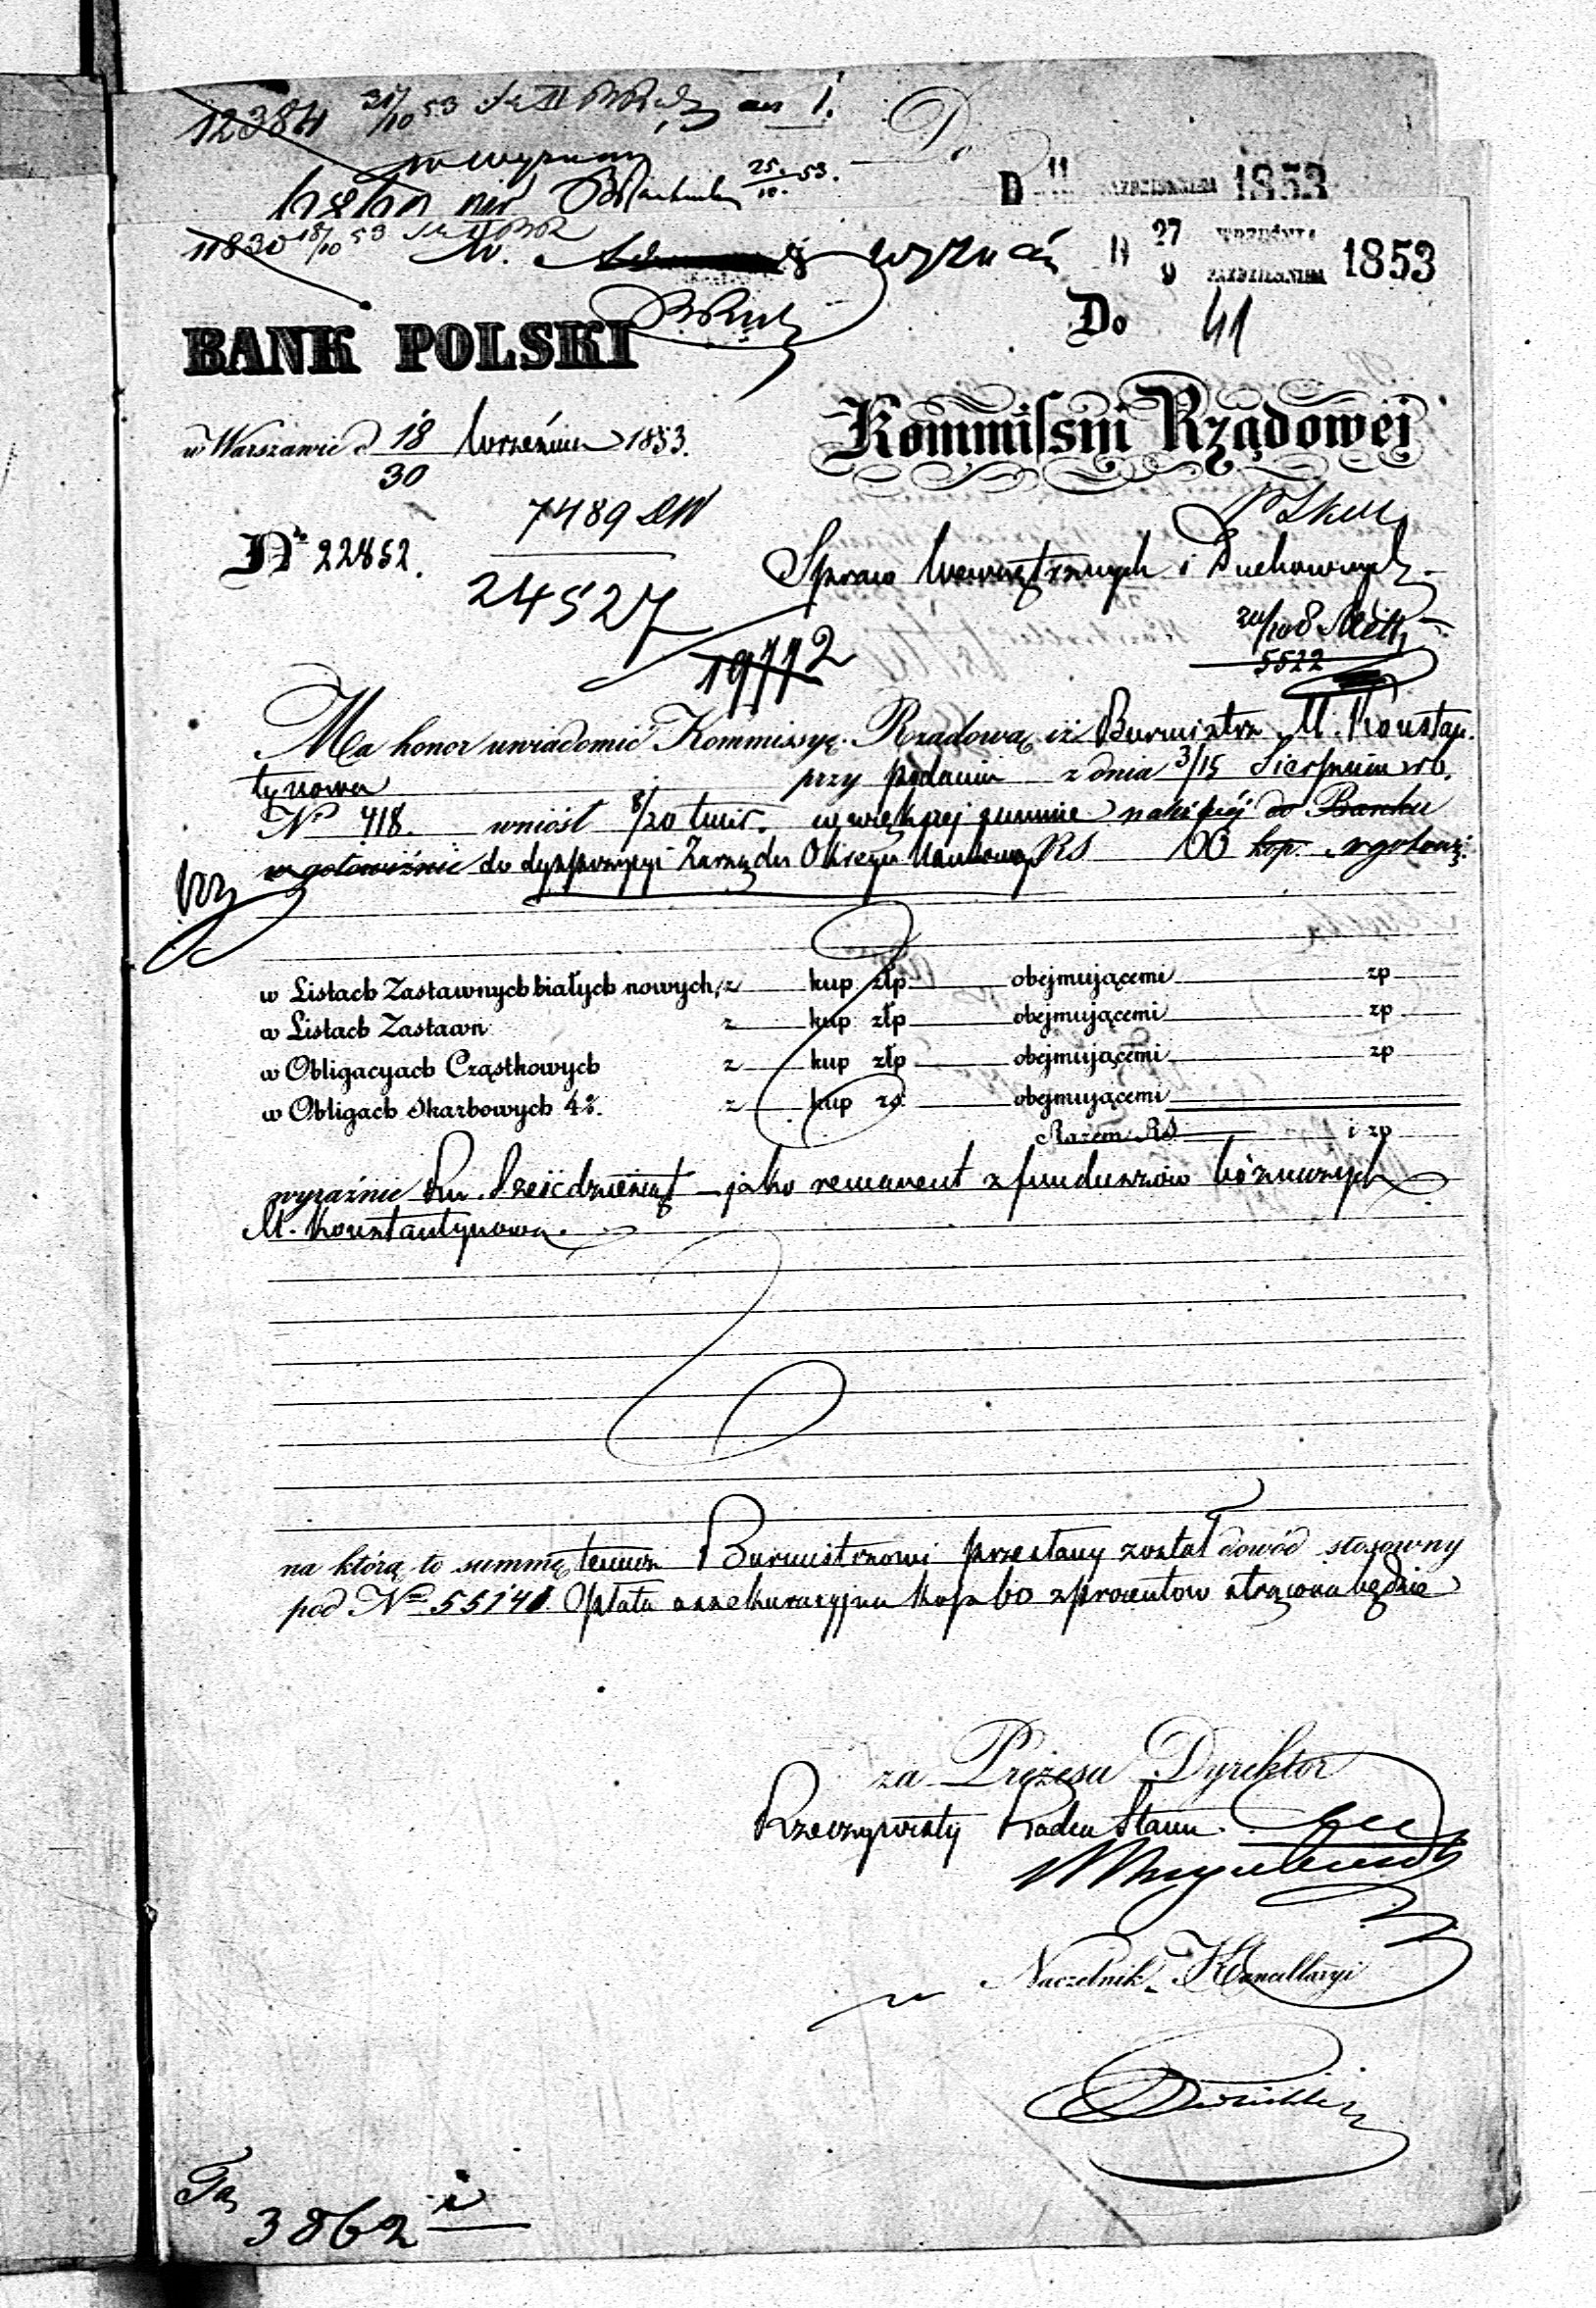 12384 31/10 53
D 11 PAZDZIERNIKA 1853
25/10 53.
11830 18/10 53
D 27 WRZEŚNIA 9 PAZDZIERNIKA 1853
BANK POLSKI
Do 41
Kommissyi Rządowej
w Warszawie d 18/30 Września 1853.
7489
No 22852.
Spraw Wewnętrznych i Duchownych
24527
19772
5522
Ma honor uwiadomić Kommissyę Rządową iż Burmistrz M. Konstan-
tynowa przy podaniu z dnia 3/15 Sierpnia rb.
No 418. wniósł 8/20 tmir. w większej summie należnej do Banku
w gotowiźnie do dyspozycyi Zarządu Okręgu Naukowego RS 60 kop.
w Listach Zastawnych białych nowych, z kup złp obejmującemi zp
w Listach Zastawn z kup złp obejmującemi zp
w Obligacyach Cząstkowych z kup złp obejmującemi zp
w Obligach Skarbowych 4%. z kup rs. obejmującemi
Razem RS i zp
wyraźnie Rsr. Sześćdziesiąt jako remanent z funduszów bóżniczych
M. Konstantynowa.
na którą to summę temuż Burmistrzowi przesłany został dowód stosowny
pod No 55141 Opłata assekuracyjna kop 60 z procentów strącona będzie
za Prezesa Dyrektor
Rzeczywisty Radca Stanu
Naczelnik Kancellaryi
3862